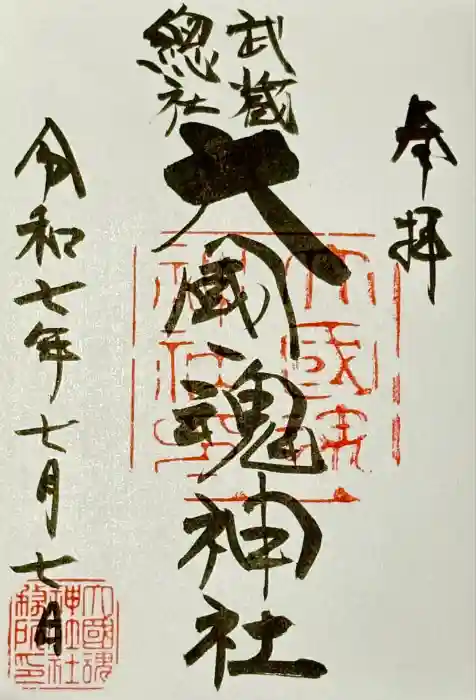 奉拝
武蔵
總社
大國魂神社
令和七年七月七日
大國魂
神社印
大國魂
神社社
務所印